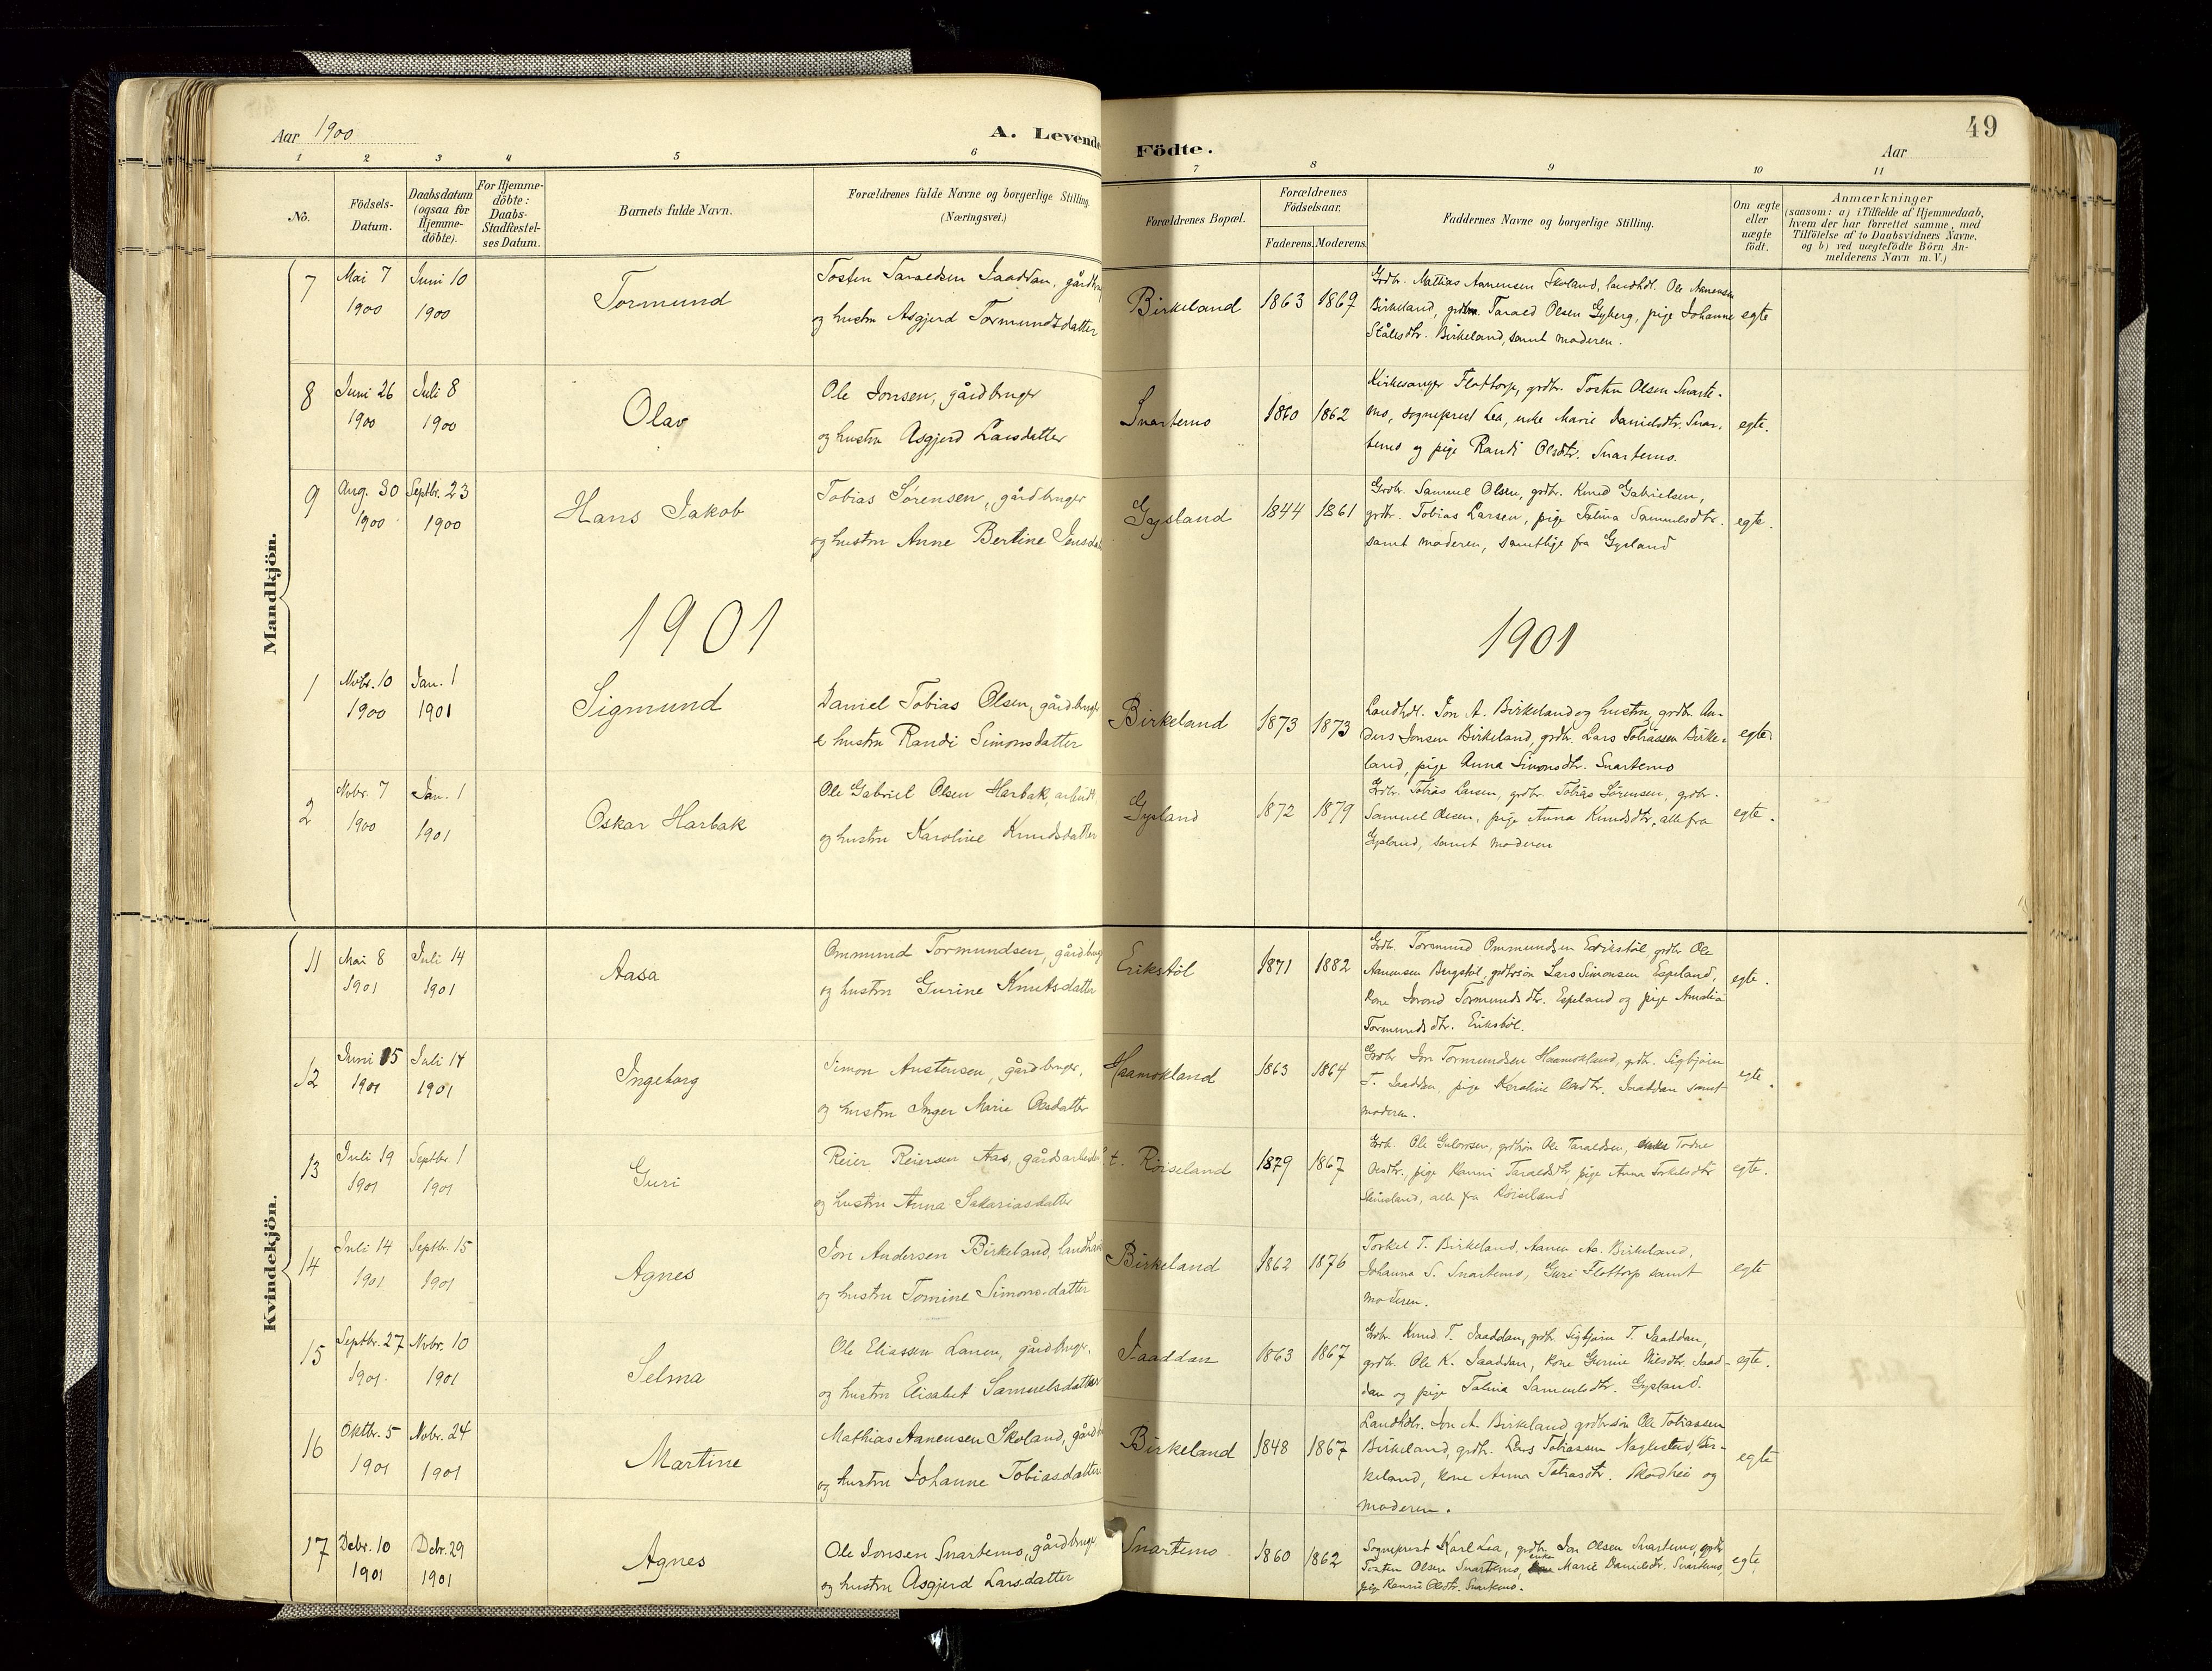 49
Aar 1900
A. Levende Födte.
Aar
1 2 3 4 5 6 7 8 9 10 11
No.
Födsels-
Datum.
Daabsdatum
(ogsaa for
Hjemme-
döbte).
For Hjemme-
döbte:
Daabs-
Stadfæstel-
ses Datum.
Barnets fulde Navn.
Forældrenes fulde Navne og borgerlige Stilling.
(Næringsvei.)
Forældrenes Bopæl.
Forældrenes
Födselsaar.
Faderens. Moderens.
Faddernes Navne og borgerlige Stilling.
Om ægte
eller
uægte
födt.
Anmærkninger
(saasom: a) i Tilfælde af Hjemmedaab,
hvem der har forrettet samme, med
Tilföielse af to Daabsvidners Navne.
og b) ved uægtefödte Börn An-
melderens Navn m. V.)
Mandkjön.
7
Mai 7
1900
Juni 10
1900
Tormund
Tosten Taraldsen Saaddan, gårdb
og hustru Asgjerd Tormundsdatter
Birkeland
1863 1869
Grdbr. Mathias Aanensen Skoland, landhdl. Ole Aanensen
Birkeland, grdbr. Tarald Olsen Gyberg, pige Johanne
Ståksdtr. Birkeland, samt moderen.
egte
8
Juni 26
1900
Juli 8
1900
Olav
Ole Jonsen, gårdbruger
og hustru Asgjerd Larsdatter
Snartemo
1860 1862
Kirkesanger Flottorp, grdbr. Tosten Olsen Snarte-
mo, sogneprest Lea, enke Marie Danielsdtr. Snar-
temo og pige Randi Olsdtr. Snartemo.
egte.
9
Aug. 30
1900
Septbr. 23
1900
Hans Jakob
Tobias Sørensen, gårdbruger
og hustru Anne Bertine Jensda
Gysland
1844 1861
Grdbr. Samuel Olsen, grdbr. Knud Gabrielsen,
grdbr. Tobias Larsen, pige Talina Samuelsdtr.
samt moderen, samtlige fra Gysland
egte.
1901
1901
1
Novbr. 10
1900
Jan. 1
1901
Sigmund
Daniel Tobias Olsen, gårdbruge
& hustru Randi Simonsdatter
Birkeland
1873 1873
Landhdl. Jon A. Birkeland og hustru, grdbr. An-
ders Jonsen Birkeland, grdbr. Lars Tobiassen Birke-
land, pige Anna Simonsdtr. Snartemo
egte.
2
Novbr. 7
1900
Jan. 1
1901
Oskar Harbak
Ole Gabriel Olsen Harbak, arbeid
og hustru Karoline Knudsdatter
Gysland
1872 1879
Grdbr. Tobias Larsen, grdbr. Tobias Sørensen, grdbr.
Samuel Olsen, pige Anna Knudsdtr., alle fra
Gysland, samt moderen
egte.
Kvindekjön.
11
Mai 8
1901
Juli 14
1901
Aasa
Ommund Tormundsen, gårdbrug
og hustru Gurine Knutsdatter
Erikstøl
1871 1882
Grdbr. Tormund Ommundsen Erikstøl, grdbr Ole
Aanensen Bergstøl, grdbrsøn Lars Simonsen Espeland,
kone Jorond Tormundsdtr. Espeland og pige Amalia
Tormundsdtr. Erikstøl.
egte.
12
Juni 15
1901
Juli 14
1901
Ingeborg
Simon Austensen, gårdbruger,
og hustru Inger Marie Olsdatter
Haamokland
1863 1864
Grdbr Jon Tormundsen Haamokland, grdbr. Sigbjørn
T. Saaddan, pige Karoline Olsdtr. Saaddan samt
moderen.
egte.
13
Juli 19
1901
Septbr. 1
1901
Guri
Reier Reiersen Aas, gårdsarbeider
og hustru Anna Sakariasdatter
Røiseland
1879 1867
Grdbr. Ole Gulovsen, grdbrsøn Ole Taraldsen, Todne
Olsdtr., pige Ranni Taraldsdtr, pige Anna Torkelsdtr
alle fra Røiseland
egte.
14
Juli 14
1901
Septbr. 15
1901
Agnes
Jon Andersen Birkeland, landha
og hustru Tomine Simonsdatter
Birkeland
1862 1876
Torkel T. Birkeland, Aanen Aa. Birkeland,
Johanna S. Snartemo, Guri Flottorp samt
moderen.
egte
15
Septbr. 27
1901.
Novbr. 10
1901
Selma
Ole Eliassen Lauen, gårdbruger,
og hustru Elisabet Samuelsdatter
Saaddan
1863 1867
Grdbr. Knud T. Saaddan, grdbr. Sigbjørn T. Saaddan,
grdbr. Ole K. Saaddan, kone Gurine Nilsdtr. Saad-
dan og pige Talina Samuelsdtr. Gysland.
egte.
16
Oktbr. 5
1901
Novbr. 24
1901
Martine
Mathias Aanensen Skoland, gårdb
og hustru Johanne Tobiasdatter
Birkeland
1848 1867
Landhdlr. Jon A. Birkeland grdbrsøn Ole Tobiassen
Birkeland, grdbr. Lars Tobiassen Naglestad, Bir-
keland, kone Anna Tobiasdtr. og
moderen.
egte
17
Debr. 10
1901
Debr. 29
1901
Agnes
Ole Jonsen Snartemo, gårdbruge
og hustru Asgjerd Larsdatter
Snartemo
1860 1862
Sogneprest Karl Lea, grdbr. Jon Olsen Snartemo, grdbr
Tosten Olsen Snartemo, enke Marie Danielsdtr. Snartemo,
pige Ranni Olsdtr. Snartemo.
egte